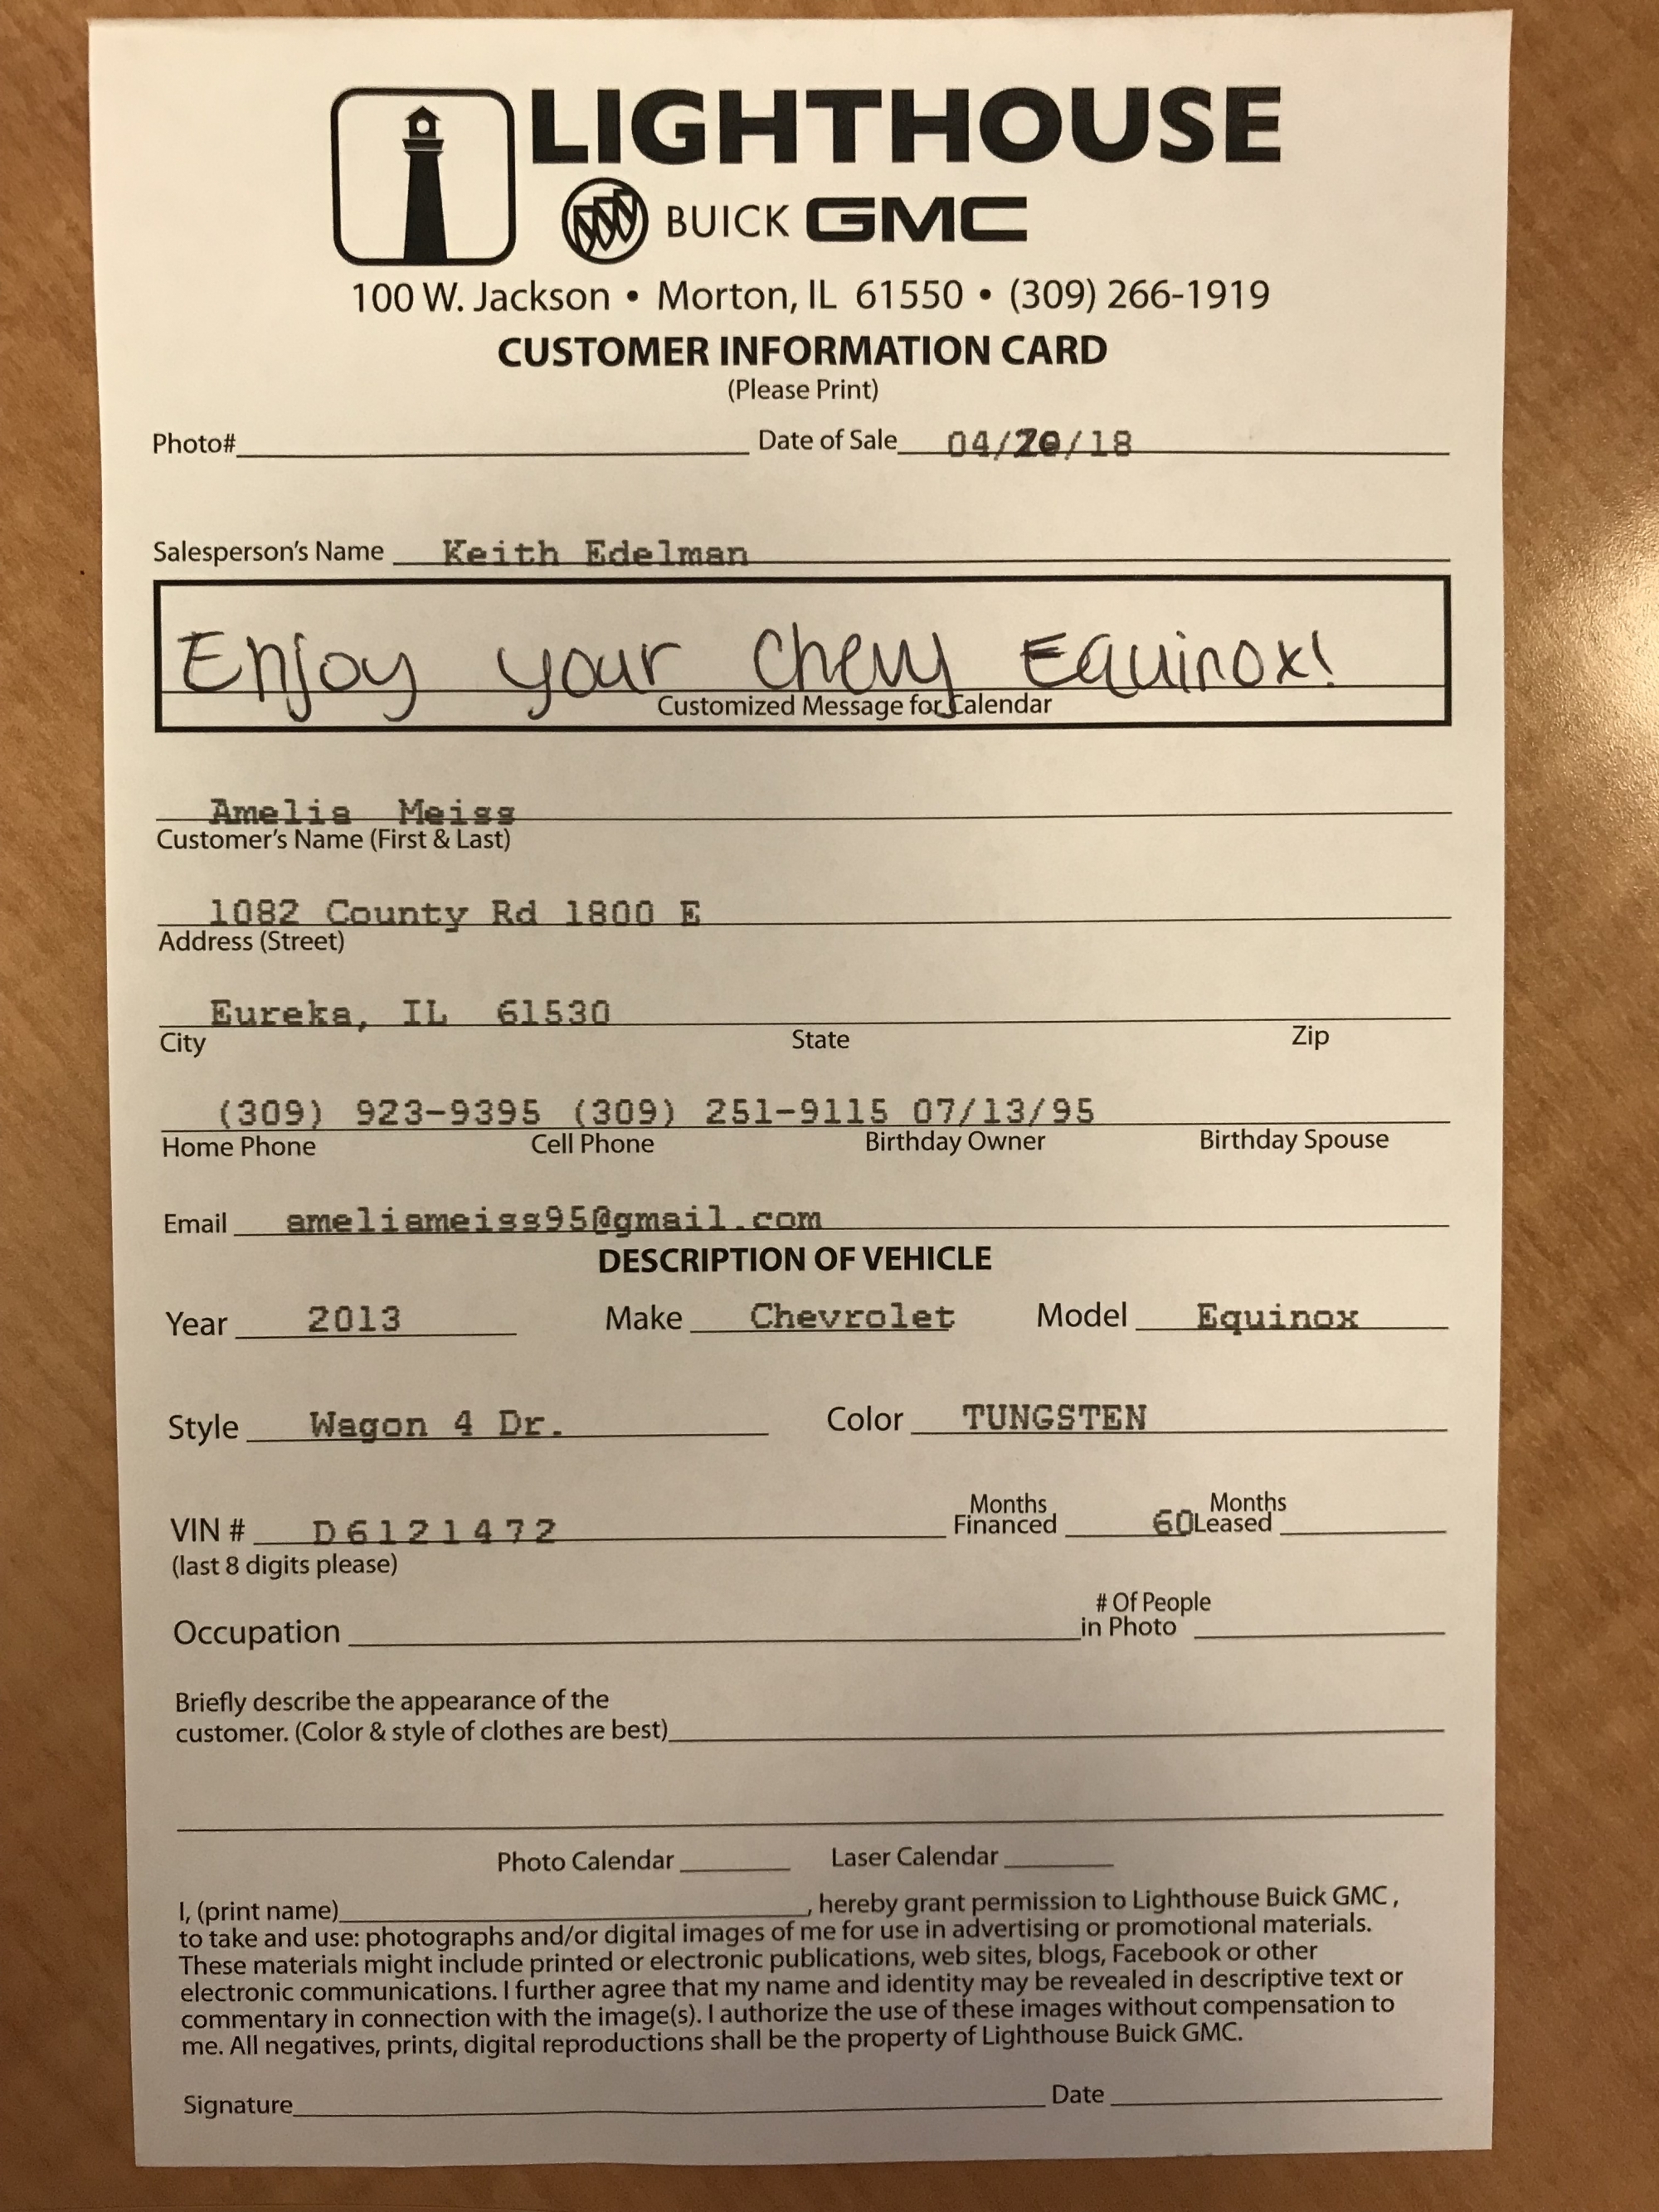 LIGHTHOUSE
BUICK GMC
100 W. Jackson • Morton, IL 61550 • (309) 266-1919
CUSTOMER INFORMATION CARD
(Please Print)
Photo# Date of Sale 04/20/18
Salesperson's Name Keith Edelman
Enjoy your Chevy Equinox!
Customized Message for Calendar
Amelia Meiss
Customer's Name (First & Last)
1082 County Rd 1800 E
Address (Street)
Eureka, IL 61530
City State Zip
(309) 923-9395 (309) 251-9115 07/13/95
Home Phone Cell Phone Birthday Owner Birthday Spouse
Email ameliameiss95@gmail.com
DESCRIPTION OF VEHICLE
Year 2013 Make Chevrolet Model Equinox
Style Wagon 4 Dr. Color TUNGSTEN
Months Months
VIN # D6121472 Financed 60 Leased
(last 8 digits please)
# Of People
Occupation in Photo
Briefly describe the appearance of the
customer. (Color & style of clothes are best)
Photo Calendar Laser Calendar
I, (print name), hereby grant permission to Lighthouse Buick GMC,
to take and use: photographs and/or digital images of me for use in advertising or promotional materials.
These materials might include printed or electronic publications, web sites, blogs, Facebook or other
electronic communications. I further agree that my name and identity may be revealed in descriptive text or
commentary in connection with the image(s). I authorize the use of these images without compensation to
me. All negatives, prints, digital reproductions shall be the property of Lighthouse Buick GMC.
Signature Date